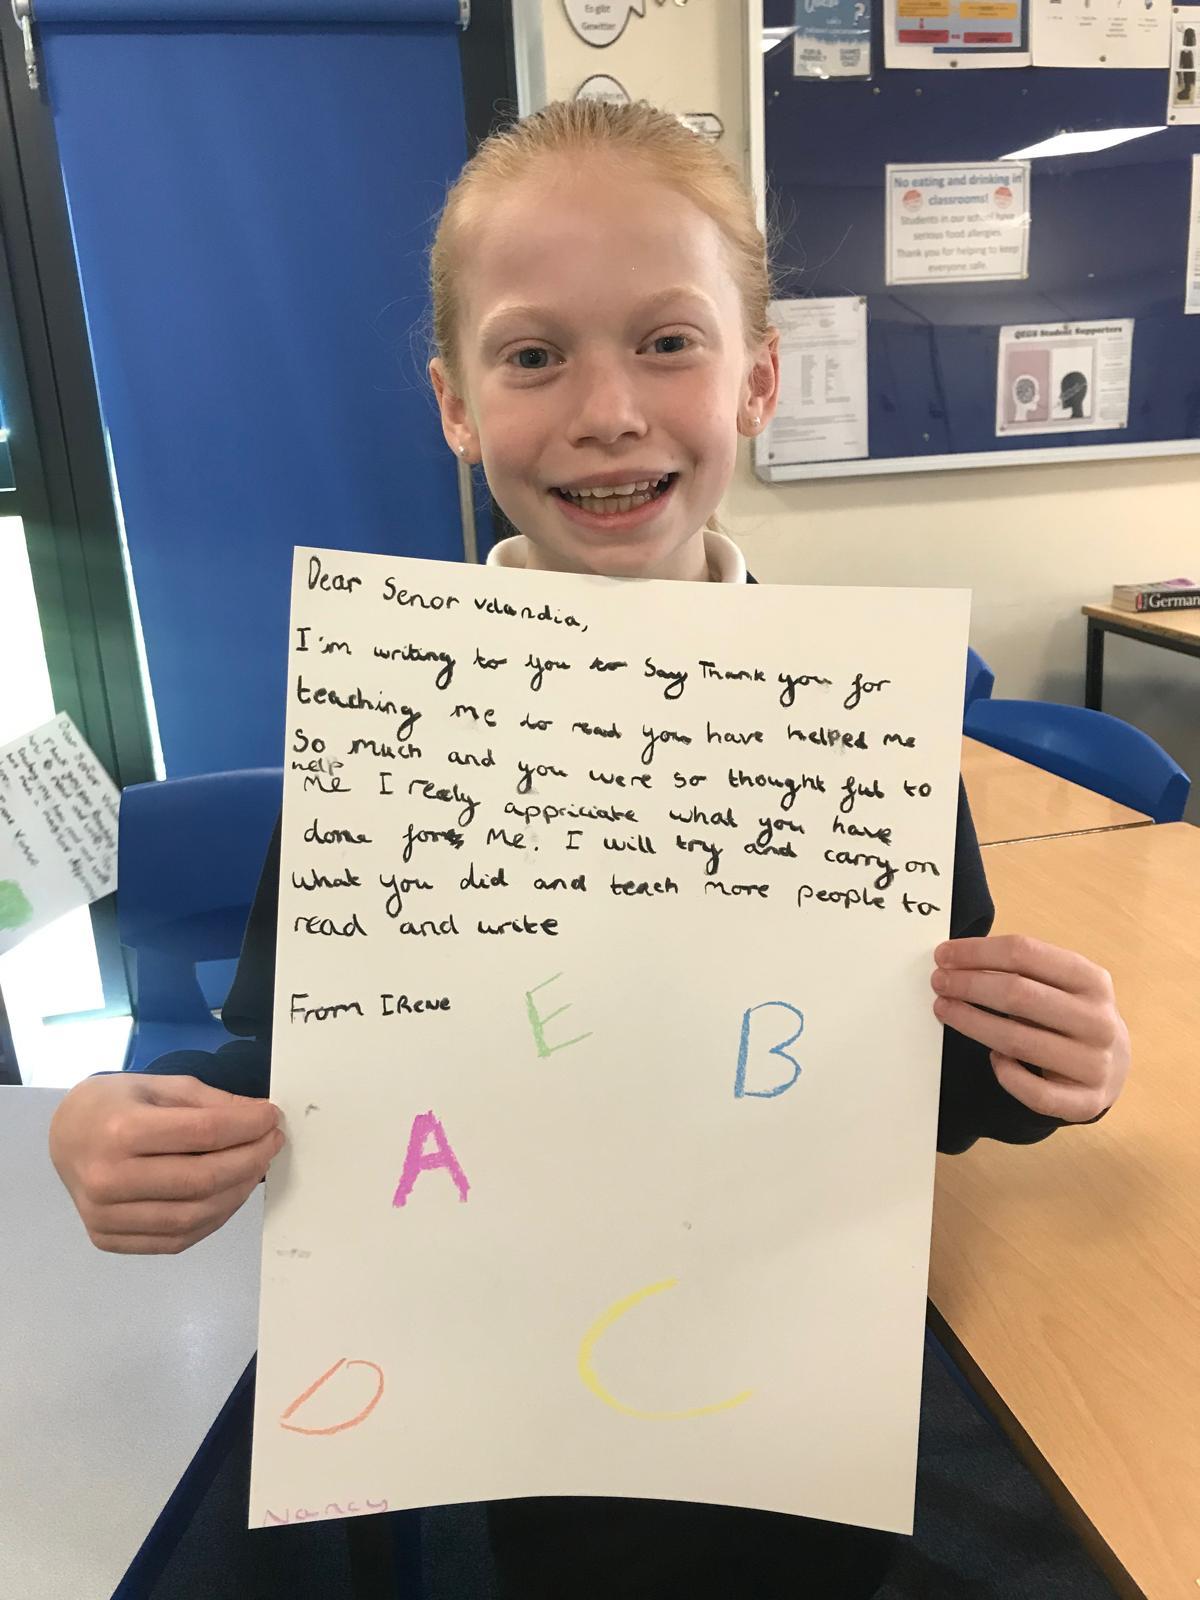 Es gibt
Gewitter
No eating and drinking in
classrooms!
Students in our school have
serious food allergies.
Thank you for helping to keep
everyone safe.
QEGS Student Supporters
German
Dear Senor velandia,
I'm writing to you to say Thank you for
teaching me to read you have helped me
So much and you were so thought ful to
help
me I realy appriciate what you have
done for me. I will try and carry on
what you did and teach more people to
read and write
From IRene
E
B
A
C
D
Nancy